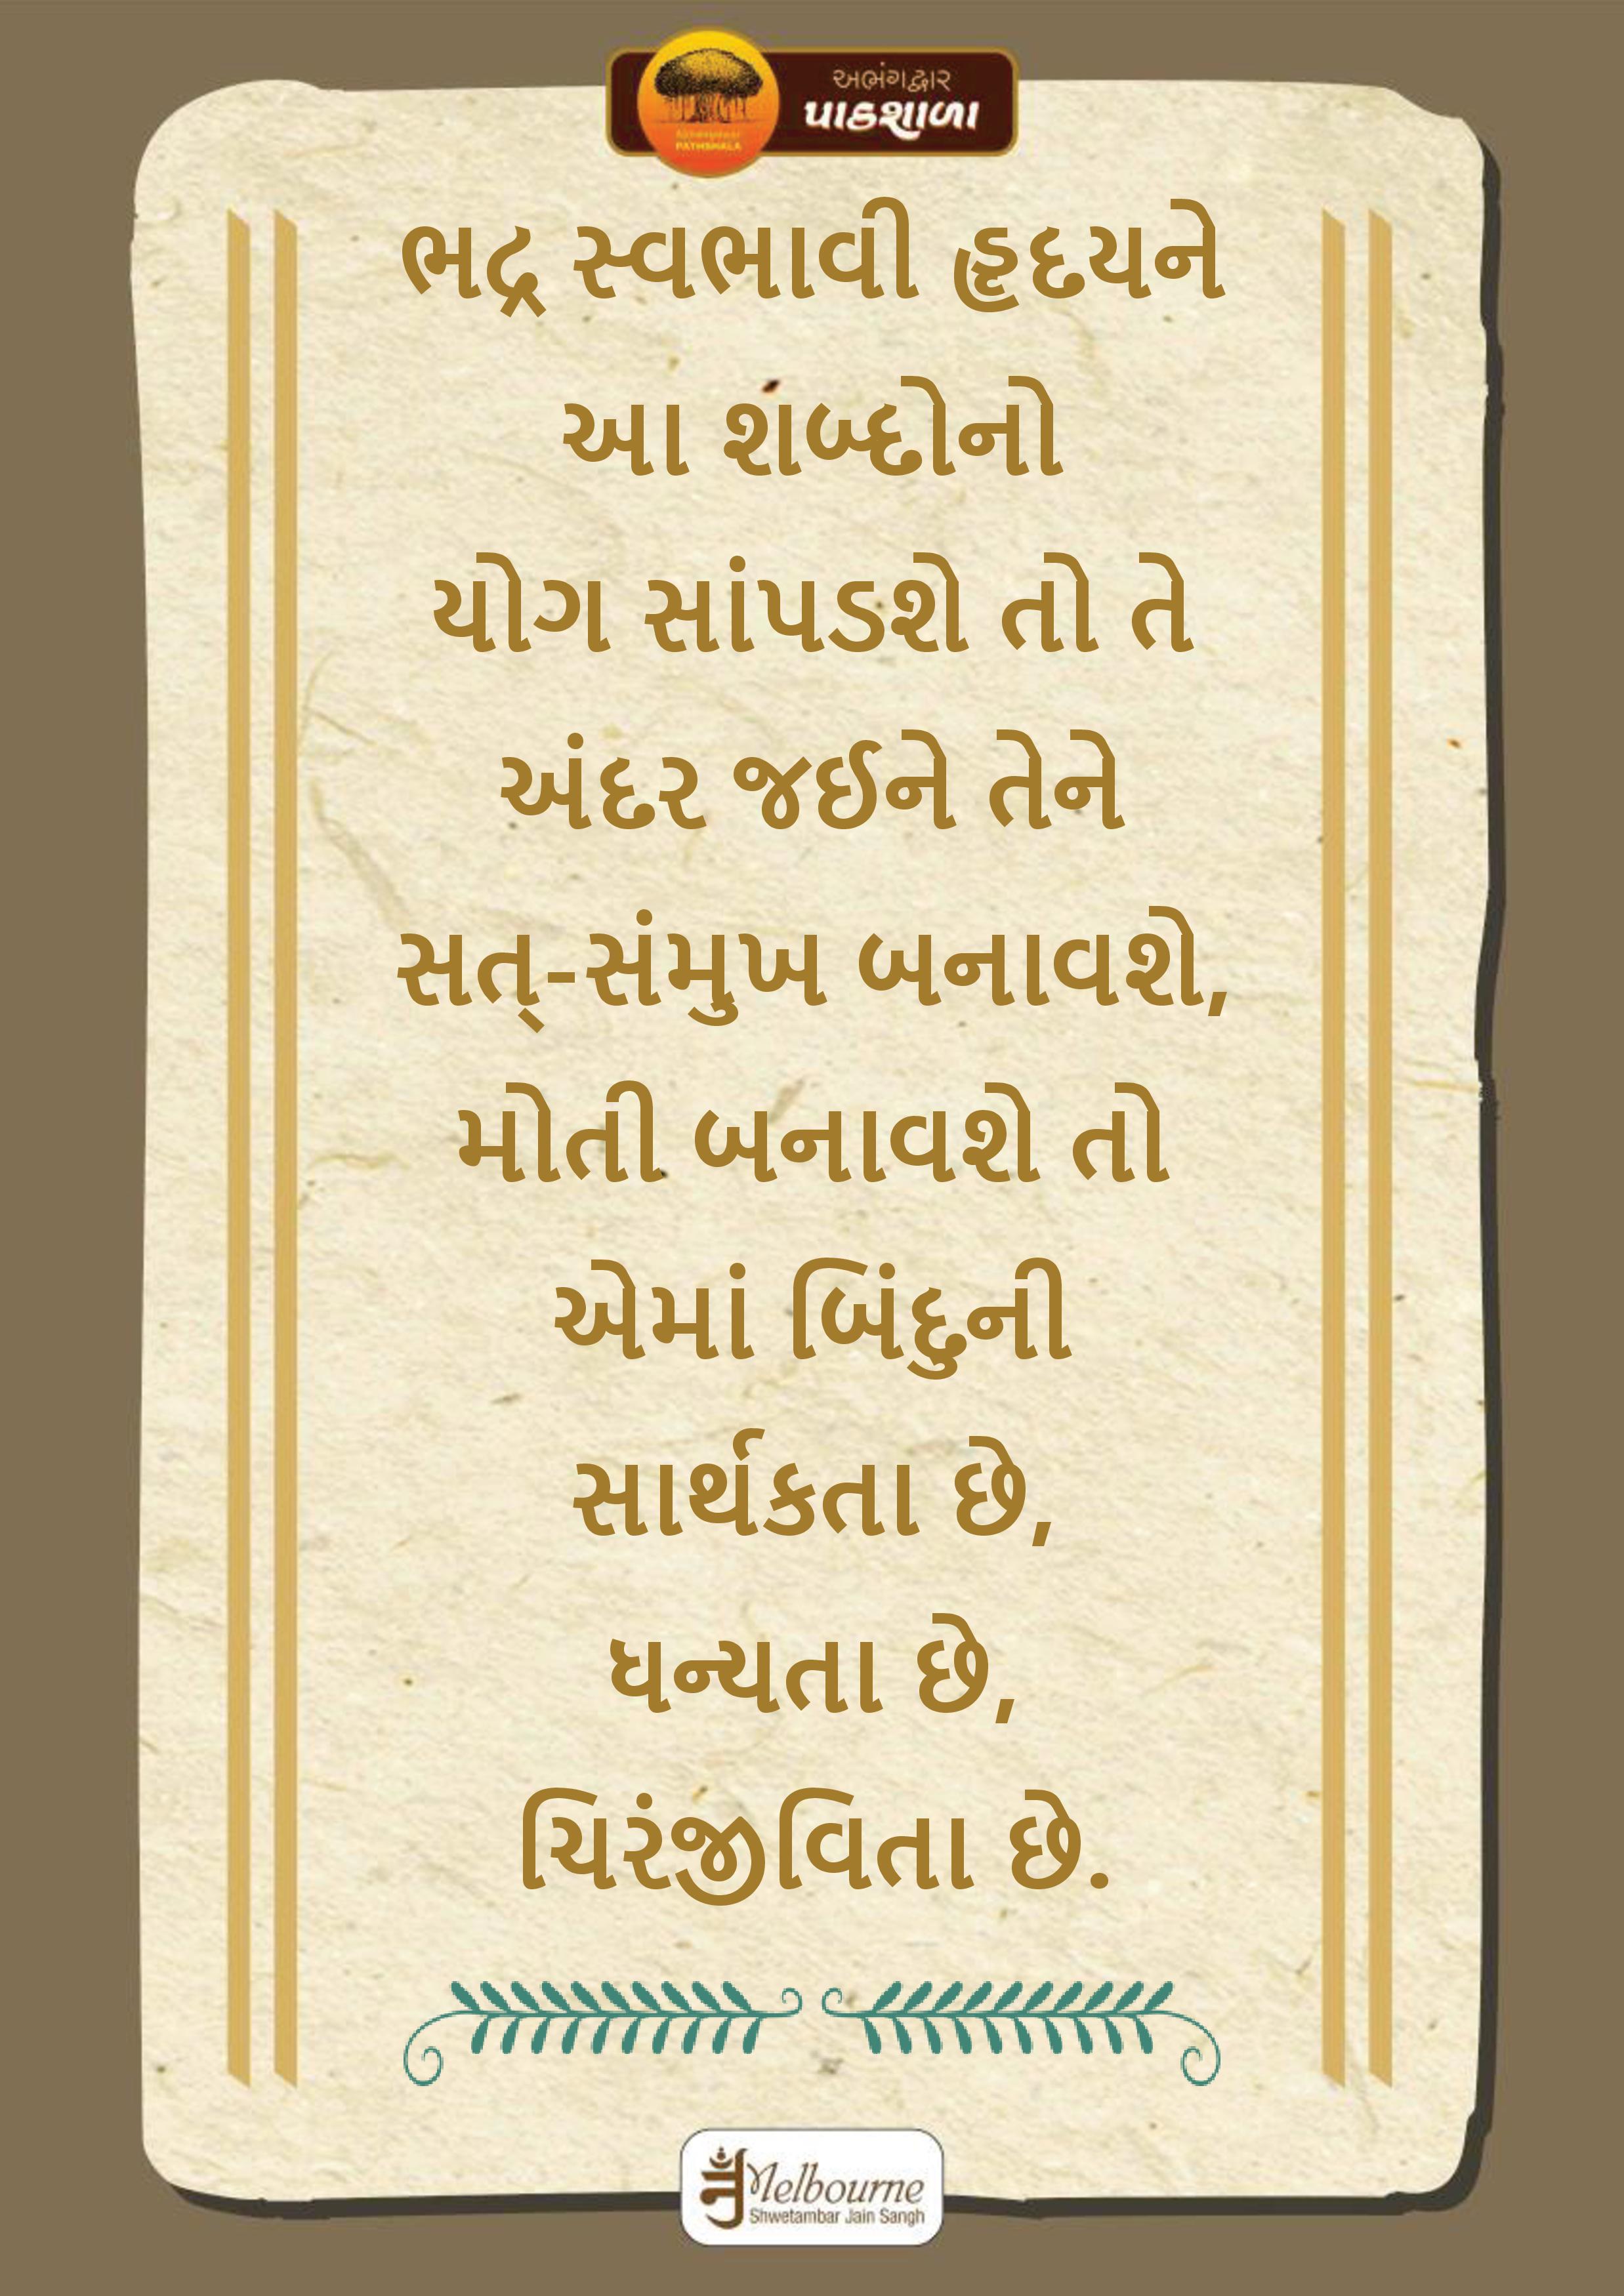 અભંગદ્વાર
પાઠશાળા
PATHSHALA
ભદ્ર સ્વભાવી હૃદયને
આ શબ્દોનો
યોગ સાંપડશે તો તે
અંદર જઈને તેને
સત્-સંમુખ બનાવશે,
મોતી બનાવશે તો
એમાં બિંદુની
સાર્થકતા છે,
ધન્યતા છે,
ચિરંજીવિતા છે.
Melbourne
Shwetambar Jain Sangh